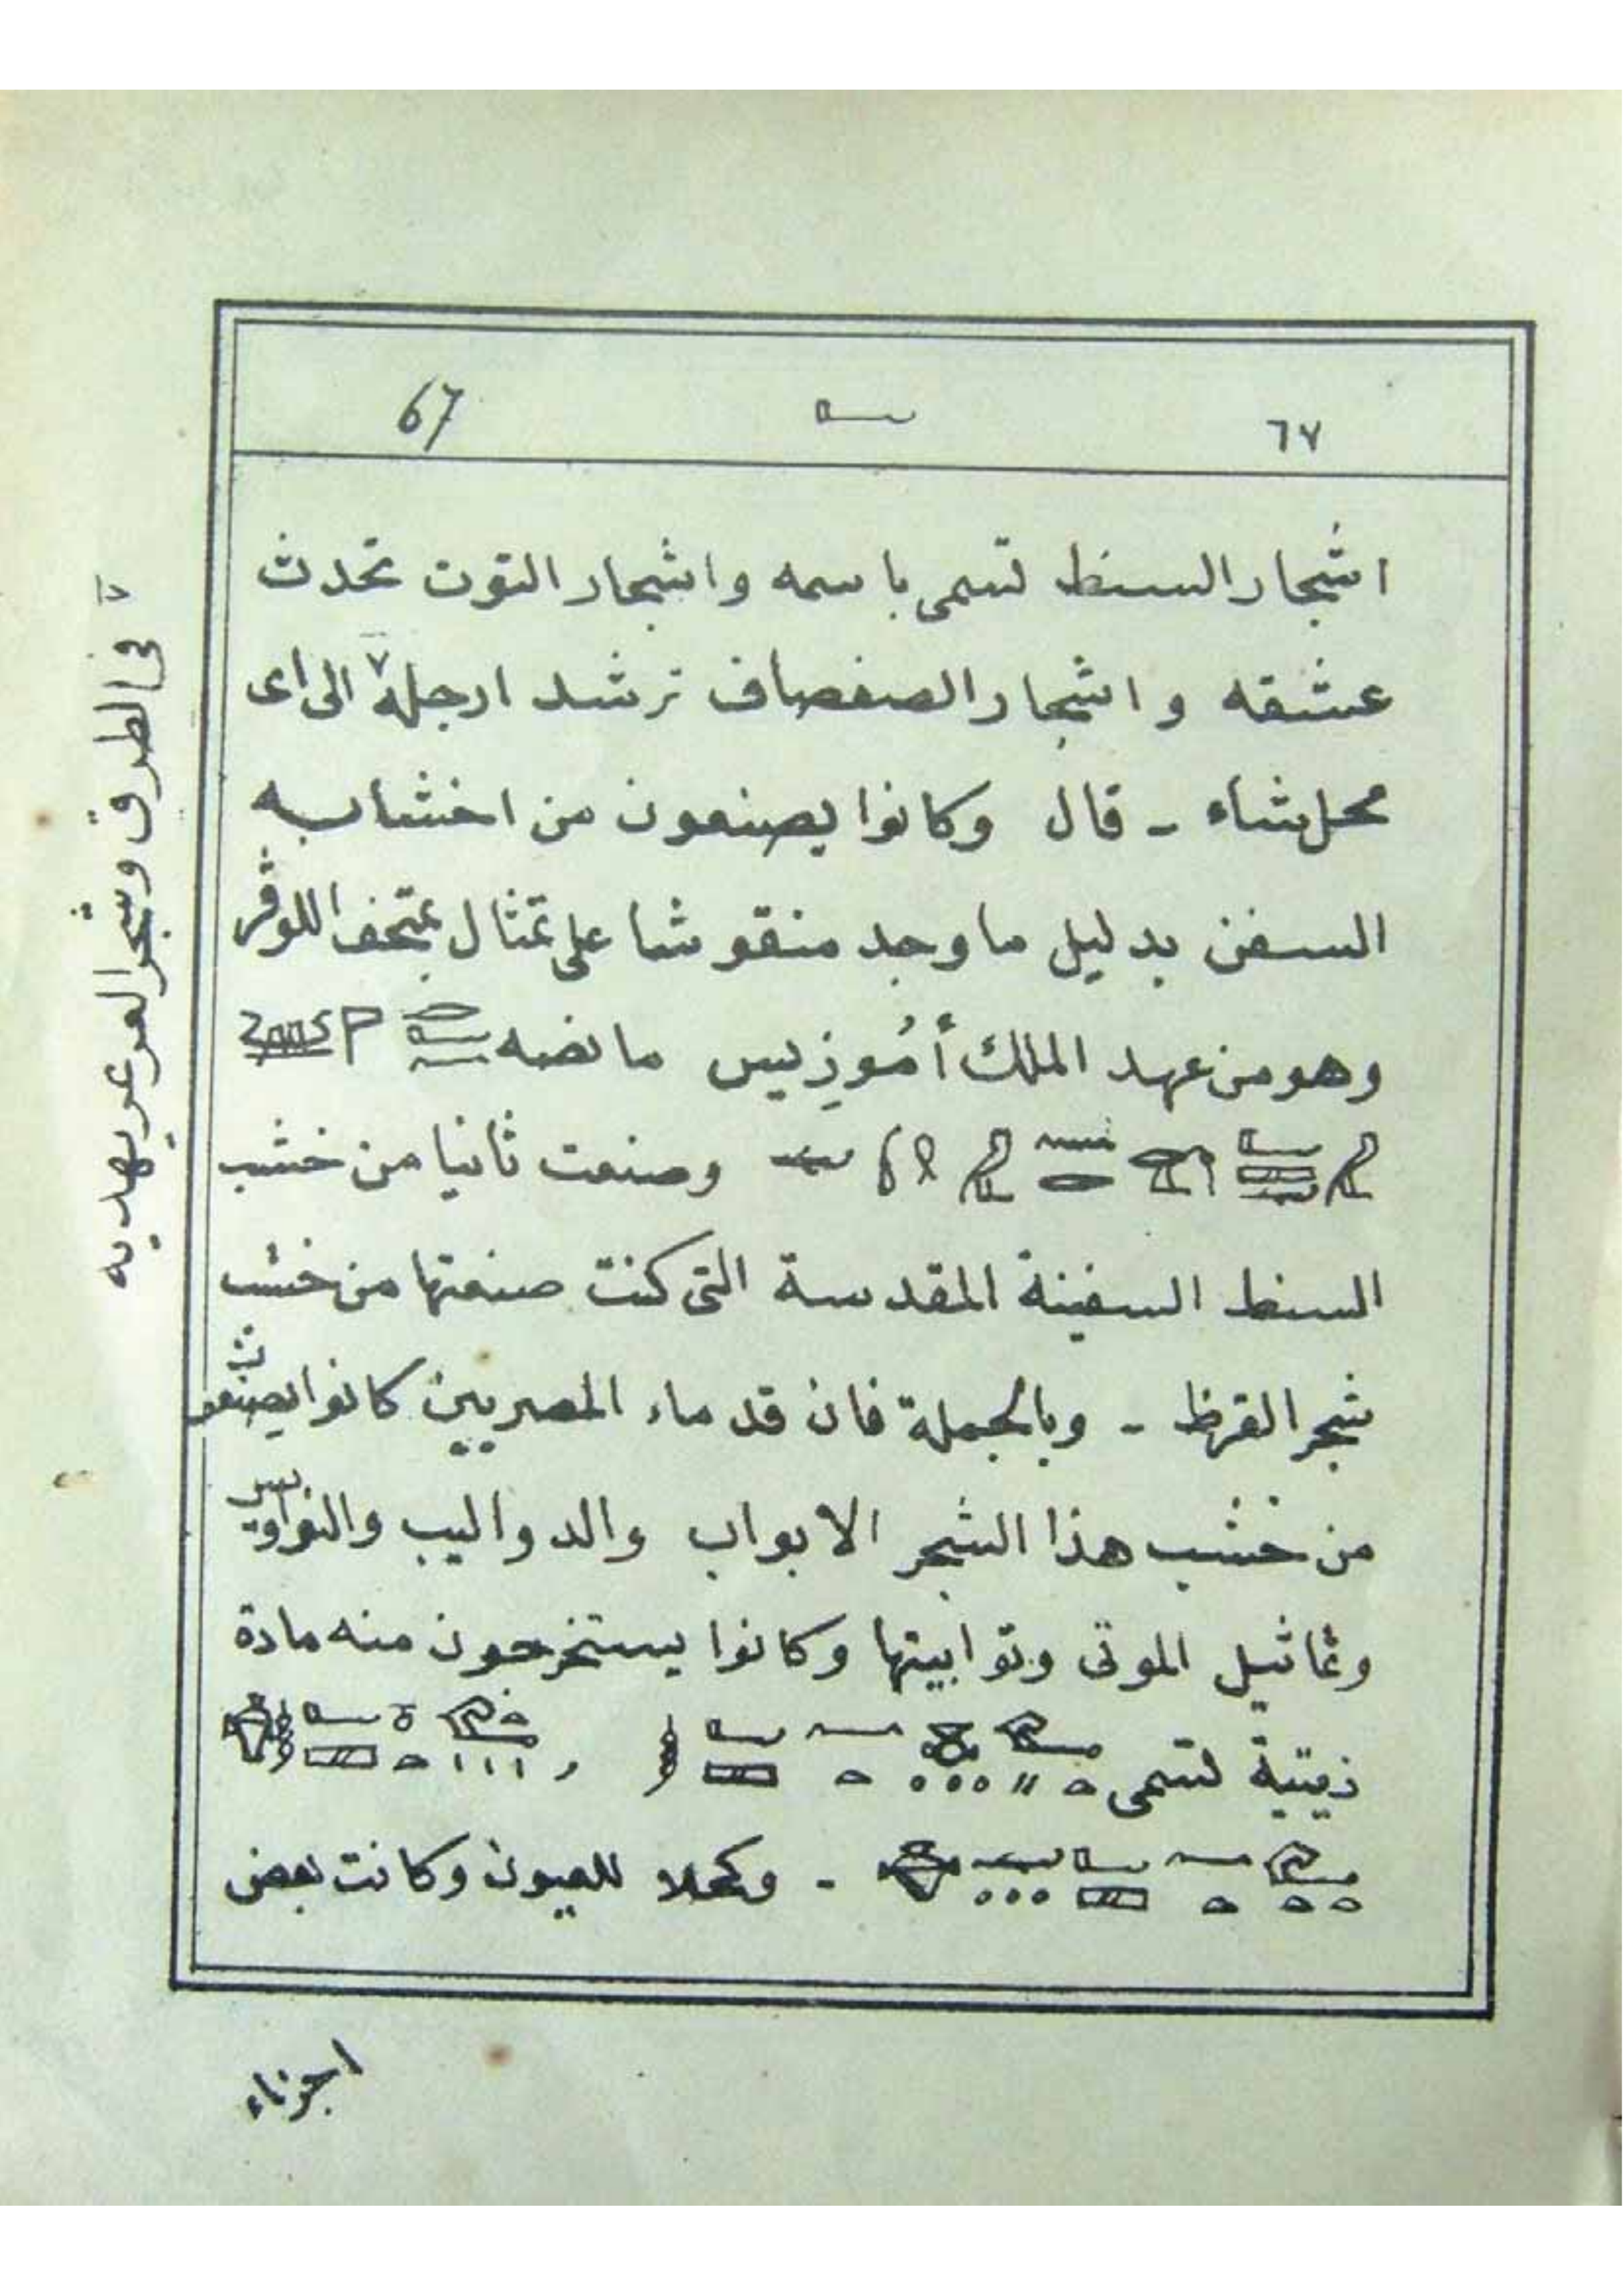 ٦٧ 67
اشجار السنط تسمى باسمه واشجار التوت تحدث
عشقه واشجار الصفصاف ترشد ارجله ٧ الى اى
محل شاء - قال وكانوا يصنعون من اخشابه
السفن بدليل ما وجد منقوشا على تمثال بمتحف اللوڤر
وهو من عهد الملك أمُوزِيس ما نصه
وصنعت ثانيا من خشب
السنط السفينة المقدسة التى كنت صنعتها من خشب
شجر القرظ - وبالجملة فان قدماء المصريين كانوا يصنعون
من خشب هذا الشجر الابواب والدواليب والنواويس
وتماثيل الموتى وتوابيتها وكانوا يستخرجون منه مادة
زيتية تسمى
- وكحلا للعيون وكانت بعض
اجزاء
٧ فى الطرق وشجر العرعر يهديه